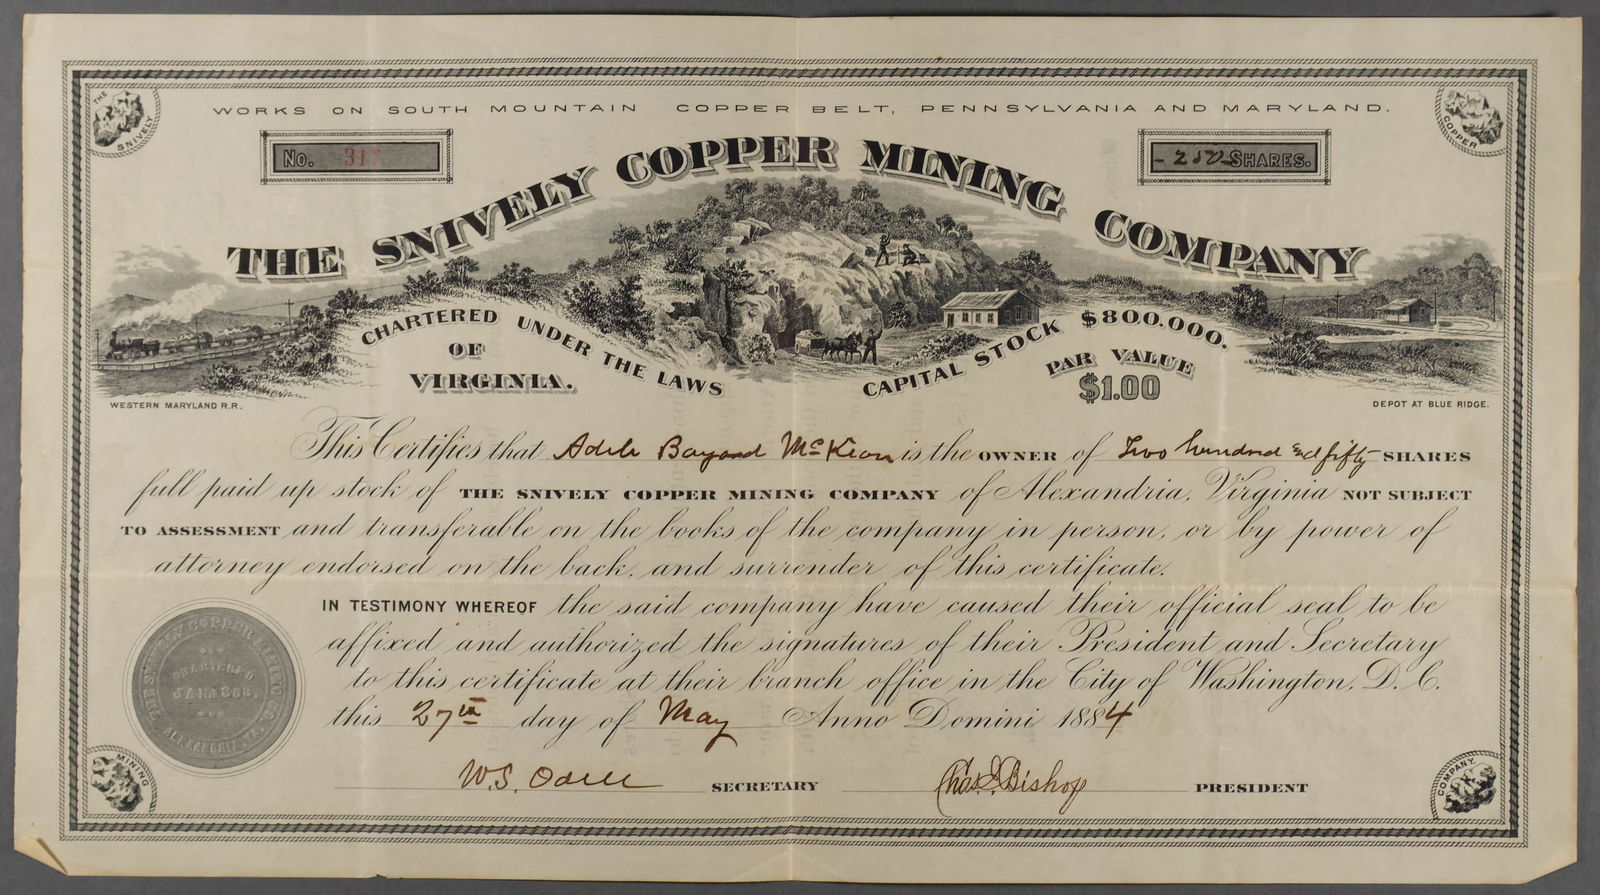 WORKS ON SOUTH MOUNTAIN COPPER BELT, PENNSYLVANIA AND MARYLAND.
THE SNIVELY
COPPER
No. 317
-250- SHARES.
THE SNIVELY COPPER MINING COMPANY
CHARTERED UNDER THE LAWS
OF
VIRGINIA.
CAPITAL STOCK $800.000.
PAR VALUE
$1.00
WESTERN MARYLAND R.R.
DEPOT AT BLUE RIDGE.
This Certifies that Adele Bayard McKean is the OWNER of Two hundred and fifty SHARES
full paid up stock of THE SNIVELY COPPER MINING COMPANY of Alexandria, Virginia NOT SUBJECT
TO ASSESSMENT and transferable on the books of the company in person, or by power of
attorney endorsed on the back, and surrender of this certificate.
IN TESTIMONY WHEREOF the said company have caused their official seal to be
affixed and authorized the signatures of their President and Secretary
to this certificate at their branch office in the City of Washington, D.C.
this 27th day of May Anno Domini 1884
THE SNIVELY COPPER MINING CO.
CHARTERED
ALEXANDRIA, VA.
W.S. Odell SECRETARY Chas. Bishop PRESIDENT
MINING
COMPANY.